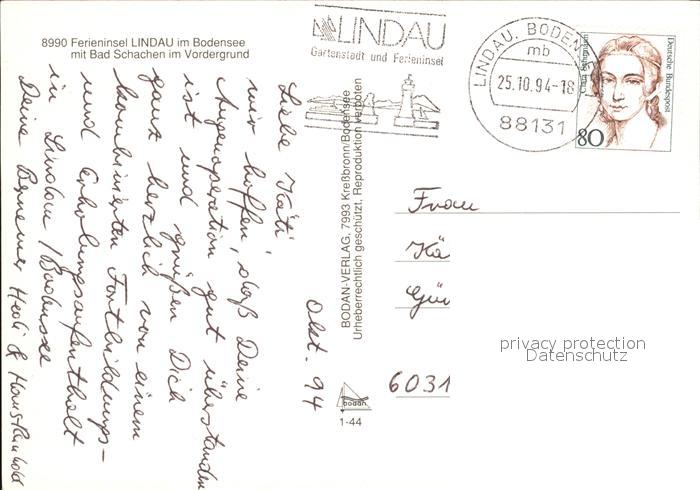 8990 Ferieninsel LINDAU im Bodensee
mit Bad Schachen im Vordergrund
LINDAU
Gartenstadt und Ferieninsel
LINDAU, BODEN
mb
25.10.94-18
88131
Deutsche Bundespost
Clara Schumann
80
BODAN-VERLAG, 7993 Kreßbronn/Bodensee
Urheberrechtlich geschützt, Reproduktion verboten
bodan
1-44
Okt. 94
Liebe Käti
wir hoffen, daß Deine
Augenoperation gut überstanden
ist und grüßen Dich
ganz herzlich von einem
kombinierten Fortbildungs-
und Erholungsaufenthalt
in Lindau / Bodensee
Deine Bremer Heidi & Hans Reinhold
Frau
Kä
Gü
6031
privacy protection
Datenschutz